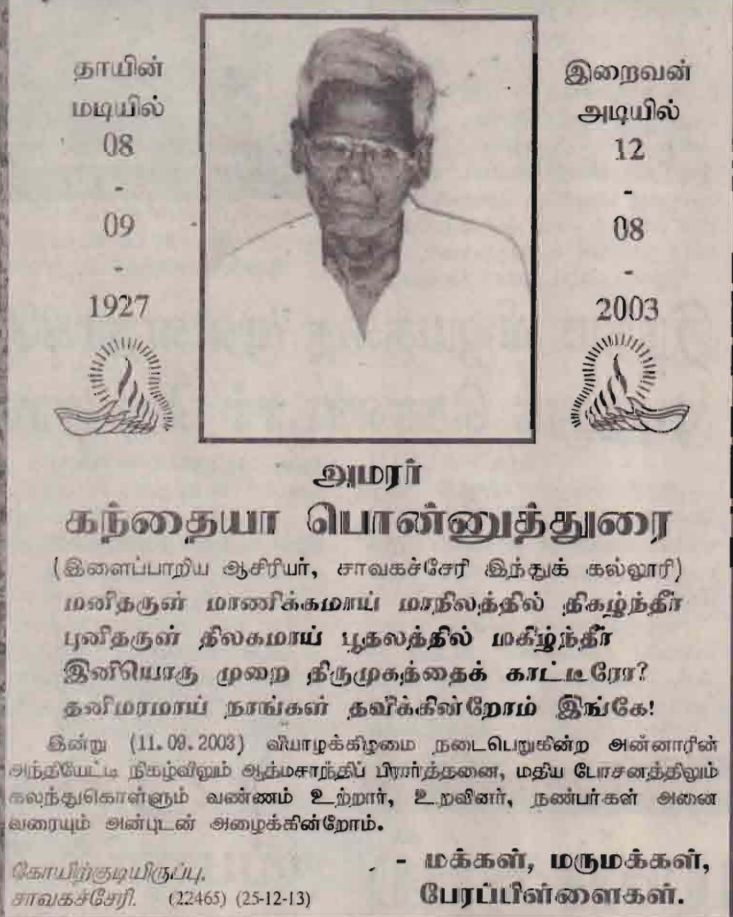 தாயின்
மடியில்
08
-
09
-
1927
இறைவன்
அடியில்
12
-
08
-
2003
அமரர்
கந்தையா பொன்னுத்துரை
(இளைப்பாறிய ஆசிரியர், சாவகச்சேரி இந்துக் கல்லூரி)
மனிதருள் மாணிக்கமாய் மாநிலத்தில் திகழ்ந்தீர்
புனிதருள் திலகமாய் பூதலத்தில் மகிழ்ந்தீர்
இனியொரு முறை திருமுகத்தைக் காட்டீரோ?
தனிமரமாய் நாங்கள் தவிக்கின்றோம் இங்கே!
இன்று (11.09.2003) வியாழக்கிழமை நடைபெறுகின்ற அன்னாரின்
அந்தியேட்டி நிகழ்விலும் ஆத்மசாந்திப் பிரார்த்தனை, மதிய போசனத்திலும்
கலந்துகொள்ளும் வண்ணம் உற்றார், உறவினர், நண்பர்கள் அனை
வரையும் அன்புடன் அழைக்கின்றோம்.
- மக்கள், மருமக்கள்,
பேரப்பிள்ளைகள்.
கோயிற்குடியிருப்பு,
சாவகச்சேரி. (22465) (25-12-13)